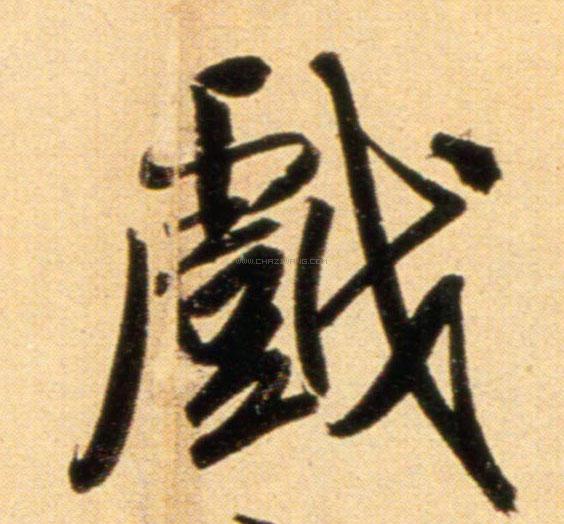 戲
WWW.CHAZIWANG.COM